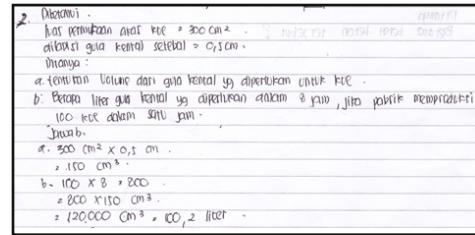 2. Diketahui.
luas permukaan atas kue = 300 cm²
dilapisi gula kental setebal = 0,5 cm.
Ditanya :
a. tentukan Volume dari gula kental yg diperlukan untuk kue.
b. Berapa liter gula kental yg diperlukan dalam 8 jam, jika pabrik memproduksi
100 kue dalam satu jam.
Jawab.
a. 300 cm² x 0,5 cm.
= 150 cm³.
b. 100 x 8 = 800
= 800 x 150 cm³.
= 120.000 cm³ = 100,2 liter